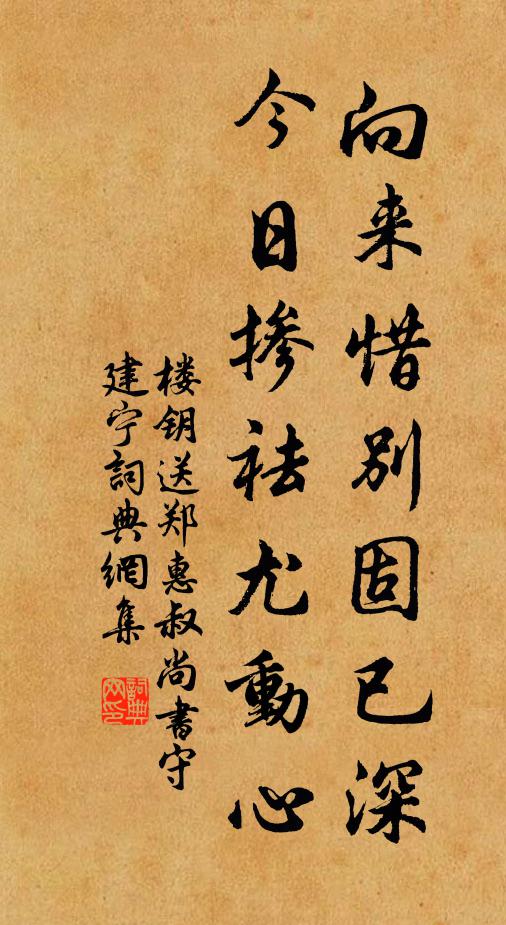 向来惜别固已深
今日掺祛尤動心
楼钥送郑惠叔尚書守
建宁詞典網集
詞典网印